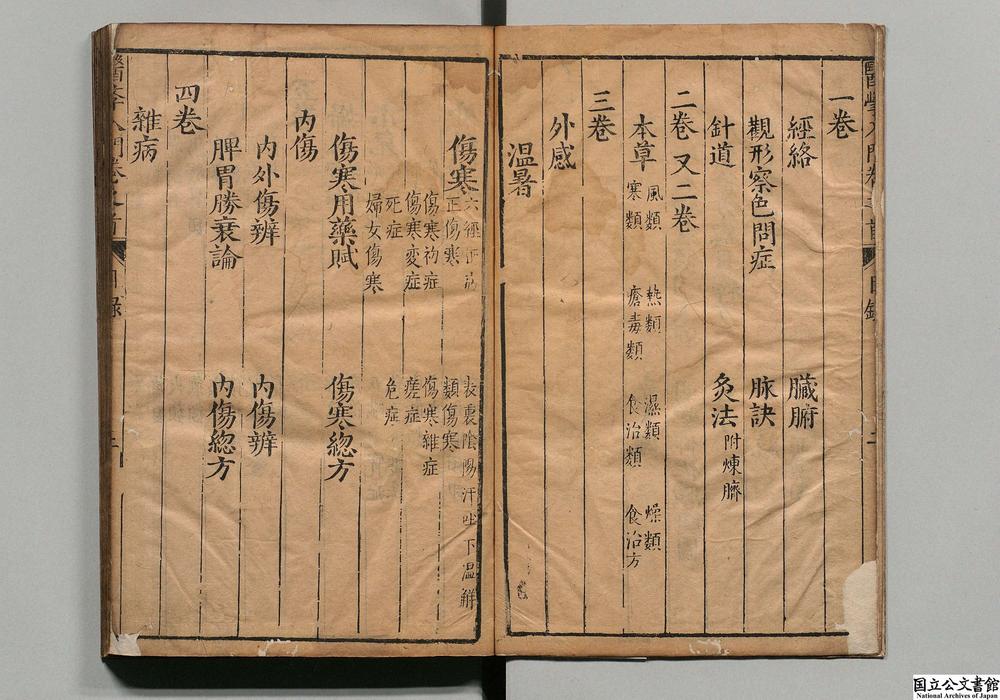 一巻
經絡 臓腑
觀形察色問症 脉訣
針道 灸法 附煉臍
二巻又二巻
本草 風類 熱類 濕類 燥類
寒類 瘡毒類 食治類 食治方
三巻
外感
温暑
傷寒 六經正病 表裏陰陽汗吐下温解
正傷寒 類傷寒
傷寒初症 傷寒雜症
傷寒変症 瘥症
死症 危症
婦女傷寒
傷寒用藥賦 傷寒總方
内傷
内外傷辨 内傷辨
脾胃勝衰論 内傷總方
四巻
雜病
醫學入門巻之首 目録 二
国立公文書館
National Archives of Japan